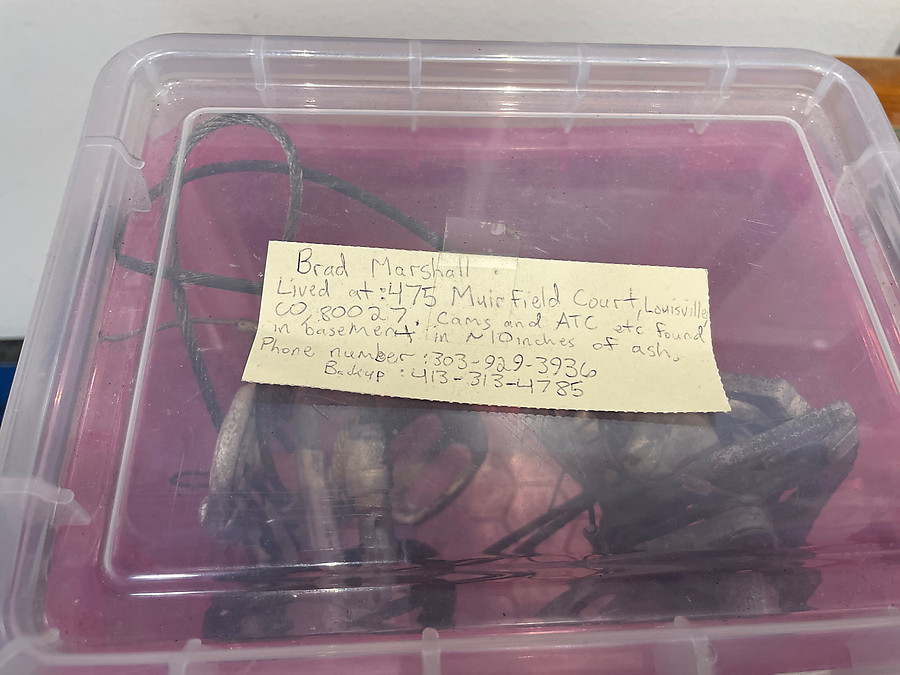 Brad Marshall
Lived at: 475 Muirfield Court, Louisville
CO, 80027. Cams and ATC etc found
in basement in ~10inches of ash.
Phone number: 303-929-3936
Backup: 413-313-4785